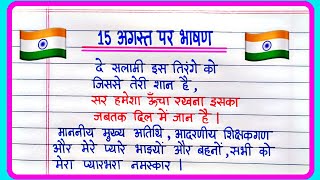 15 अगस्त पर भाषण
दे सलामी इस तिरंगे को
जिससे तेरी शान है,
सर हमेशा ऊँचा रखना इसका
जबतक दिल में जान है।
माननीय मुख्य अतिथि, आदरणीय शिक्षकगण
और मेरे प्यारे भाइयों और बहनों, सभी को
मेरा प्यारभरा नमस्कार।